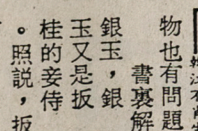 物也有問題
書裏解
銀玉，銀
玉又是扳
桂的妾侍
。照説，扳